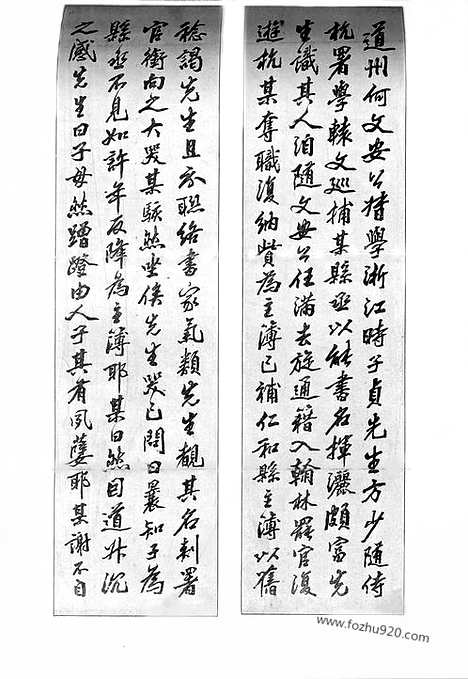 道州何文安公督學浙江時子貞先生方少隨侍
杭署學轅文巡捕某縣丞以能書名揮灑頗富先
生識其人洎隨文安公任滿去旋通籍入翰林罷官復
遊杭某奪職復納貲為主簿已補仁和縣主簿以舊
稔謁先生且示聯絡書家氣類先生覩其名刺署
官銜向之大哭某駭然坐俟先生哭已問曰曩知子為
縣丞不見如許年反降為主簿耶某曰然因道升沉
之感先生曰子毋然蹭蹬由人子其有夙孽耶某謝不自
www.fozhu920.com